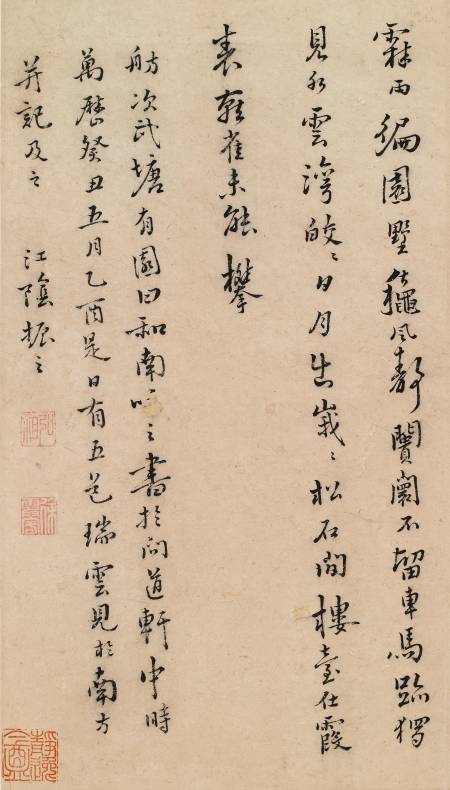 霖雨徧園墅風靜闤闠不留車馬跡獨
見水雲灣皎〻日月出峩〻松石間樓臺仕霞
表雀未能攀
舫次武塘有園曰和南咏之書於問道軒中時
萬曆癸丑五月乙酉是日有五色瑞雲見於南方
并記及之 江陰振之